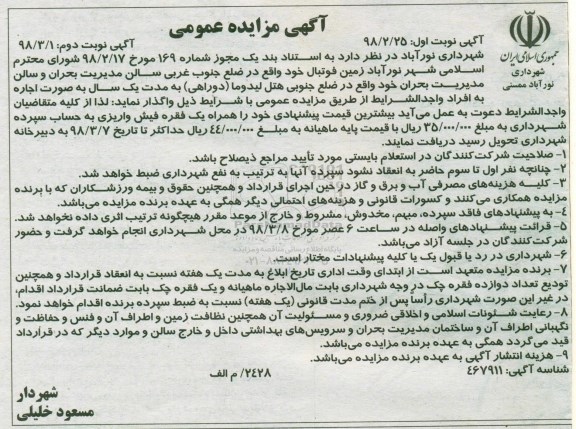 آگهی مزایده عمومی
جمهوری اسلامی ایران
شهرداری
نورآباد ممسنی
آگهی نوبت اول: ۹۸/۲/۲۵
آگهی نوبت دوم: ۹۸/۳/۱
شهرداری نورآباد در نظر دارد به استناد بند یک مجوز شماره ۱۶۹ مورخ ۹۸/۲/۱۷ شورای محترم
اسلامی شهر نورآباد زمین فوتبال خود واقع در ضلع جنوب غربی سالن مدیریت بحران و سالن
مدیریت بحران خود واقع در ضلع جنوبی هتل لیدوما (دوراهی) به مدت یک سال به صورت اجاره
به افراد واجدالشرایط از طریق مزایده عمومی با شرایط ذیل واگذار نماید: لذا از کلیه متقاضیان
واجدالشرایط دعوت به عمل می‌آید بیشترین قیمت پیشنهادی خود را همراه یک فقره فیش واریزی به حساب سپرده
شهرداری به مبلغ ۳۵/۰۰۰/۰۰۰ ریال با قیمت پایه ماهیانه به مبلغ ۴۴/۰۰۰/۰۰۰ ریال حداکثر تا تاریخ ۹۸/۳/۷ به دبیرخانه
شهرداری تحویل رسید دریافت نمایند.
۱- صلاحیت شرکت‌کنندگان در استعلام بایستی مورد تأیید مراجع ذیصلاح باشد.
۲- چنانچه نفر اول تا سوم حاضر به انعقاد نشود سپرده آنها به ترتیب به نفع شهرداری ضبط خواهد شد.
۳- کلیه هزینه‌های مصرفی آب و برق و گاز در حین اجرای قرارداد و همچنین حقوق و بیمه ورزشکاران که با برنده
مزایده همکاری می‌کنند و کسورات قانونی و هزینه‌های احتمالی دیگر همگی به عهده برنده مزایده می‌باشد.
۴- به پیشنهادهای فاقد سپرده، مبهم، مخدوش، مشروط و خارج از موعد مقرر هیچگونه ترتیب اثری داده نخواهد شد.
۵- قرائت پیشنهادهای واصله در ساعت ۶ عصر مورخ ۹۸/۳/۸ در محل شهرداری انجام خواهد گرفت و حضور
شرکت‌کنندگان در جلسه آزاد می‌باشد.
۶- شهرداری در رد یا قبول یک یا کلیه پیشنهادات مختار است.
۷- برنده مزایده متعهد است از ابتدای وقت اداری تاریخ ابلاغ به مدت یک هفته نسبت به انعقاد قرارداد و همچنین
تودیع تعداد دوازده فقره چک در وجه شهرداری بابت مال‌الاجاره ماهیانه و یک فقره چک بابت ضمانت قرارداد اقدام،
در غیر این صورت شهرداری رأساً پس از ختم مدت قانونی (یک هفته) نسبت به ضبط سپرده برنده اقدام خواهد نمود.
۸- رعایت شئونات اسلامی و اخلاقی ضروری و مسئولیت آن همچنین نظافت زمین و اطراف آن و فنس و حفاظت و
نگهبانی اطراف آن و ساختمان مدیریت بحران و سرویس‌های بهداشتی داخل و خارج سالن و موارد دیگر که در قرارداد
قید می‌گردد همگی به عهده برنده مزایده می‌باشد.
۹- هزینه انتشار آگهی به عهده برنده مزایده می‌باشد.
شناسه آگهی: ۴۶۷۹۱۱
۲۴۲۸/ م الف
شهردار
مسعود خلیلی